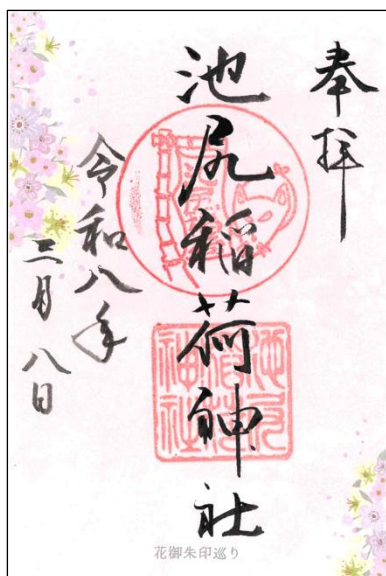 奉拝
池尻稲荷神社
令和八年
三月八日
池尻
稲荷
神社
花御朱印巡り